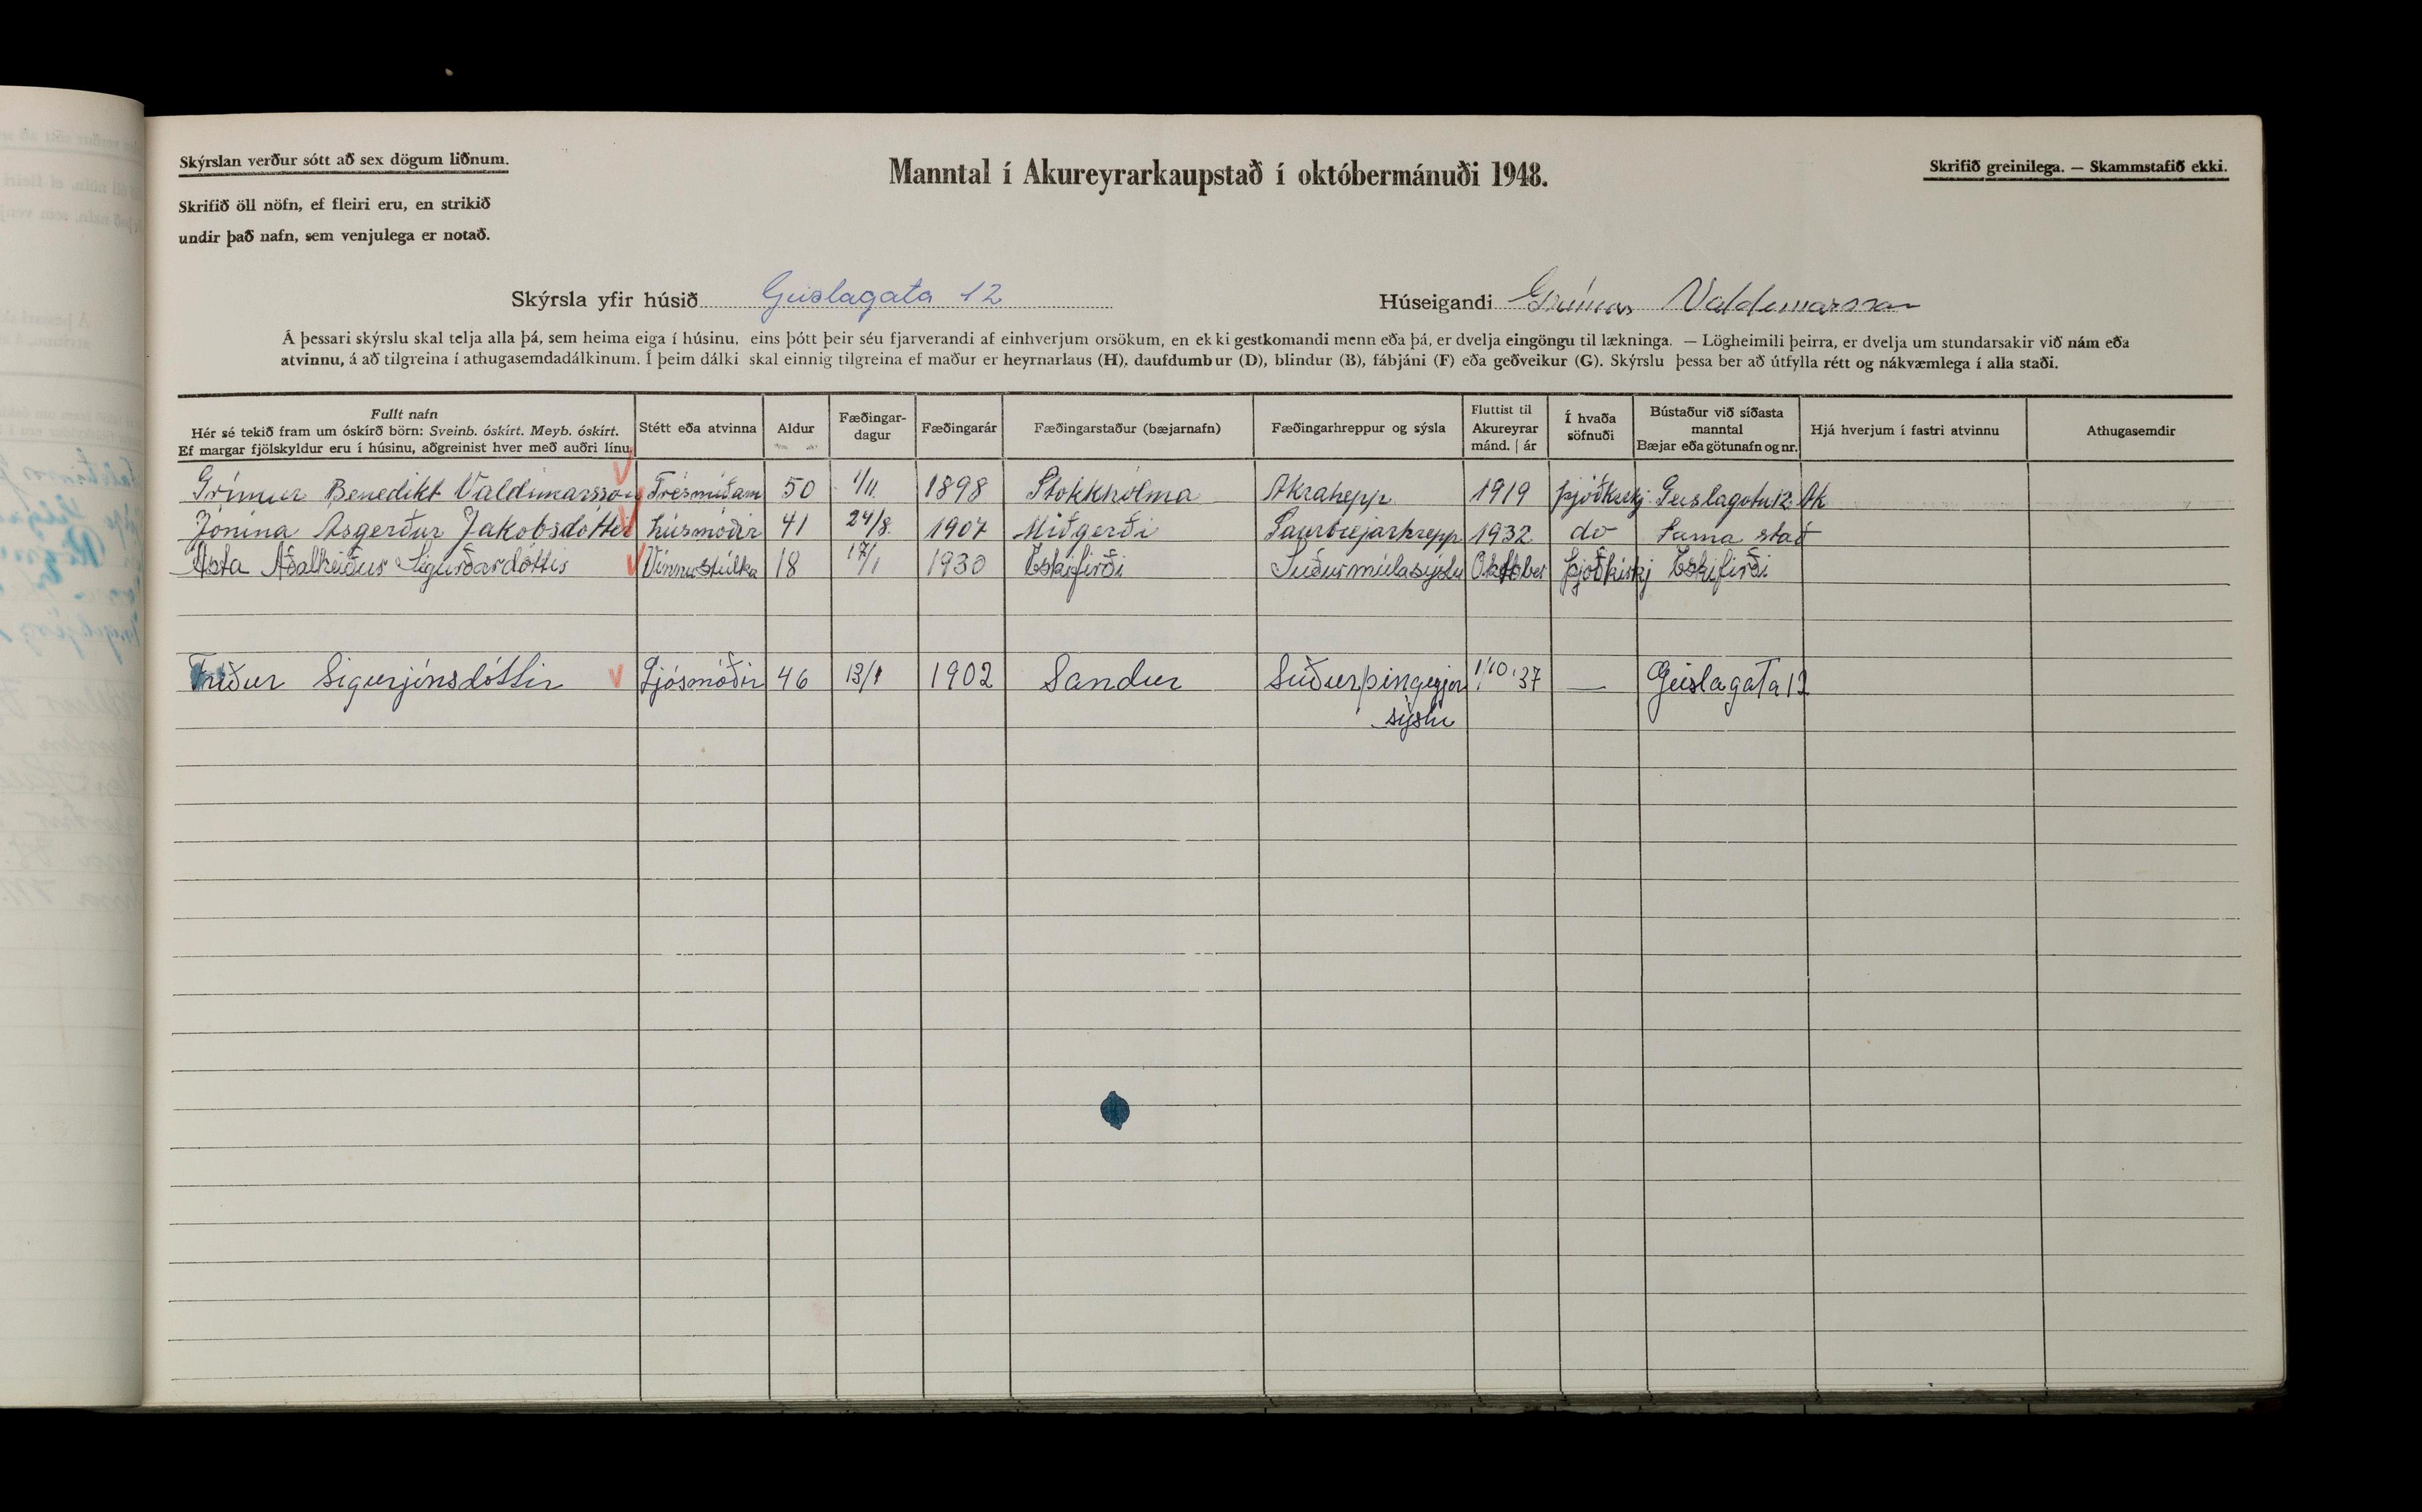 Skýrslan verður sótt að sex dögum liðnum.
Skrifið öll nöfn, ef fleiri eru, en strikið
undir það nafn, sem venjulega er notað.
Manntal í Akureyrarkaupstað í októbermánuði 1948.
Skrifið greinilega. — Skammstafið ekki.
Skýrsla yfir húsið Geislagata 12 Húseigandi Grímur Valdemarsson
Á þessari skýrslu skal telja alla þá, sem heima eiga í húsinu, eins þótt þeir séu fjarverandi af einhverjum orsökum, en ekki gestkomandi menn eða þá, er dvelja eingöngu til lækninga. — Lögheimili þeirra, er dvelja um stundarsakir við nám eða
atvinnu, á að tilgreina í athugasemdadálkinum. Í þeim dálki skal einnig tilgreina ef maður er heyrnarlaus (H), daufdumbur (D), blindur (B), fábjáni (F) eða geðveikur (G). Skýrslu þessa ber að útfylla rétt og nákvæmlega í alla staði.
Fullt nafn
Hér sé tekið fram um óskírð börn: Sveinb. óskírt. Meyb. óskírt.
Ef margar fjölskyldur eru í húsinu, aðgreinist hver með auðri línu.
Stétt eða atvinna
Aldur
Fæðingar-
dagur
Fæðingarár
Fæðingarstaður (bæjarnafn)
Fæðingarhreppur og sýsla
Fluttist til
Akureyrar
mánd. | ár
Í hvaða
söfnuði
Bústaður við síðasta
manntal
Bæjar eða götunafn og nr.
Hjá hverjum í fastri atvinnu
Athugasemdir
Grímur Benedikt Valdimarsson Trésmíðam 50 1/11. 1898 Stokkhólma Akrahepp 1919 þjóðkirkj. Geislagötu 12. Ak
Jónína Asgerður Jakobsdóttir húsmóðir 41 24/8. 1907 Miðgerði Saurbæjarhrepp 1932 do Sama stað
Asta Aðalheiður Sigurðardóttir Vinnustúlka 18 17/1 1930 Eskifirði Suðurmúlasýslu Október þjóðkirkj Eskifirði
Fríður Sigurjónsdóttir Ljósmóðir 46 13/1 1902 Sandur Suðurþingeyjar 1/10 '37 — Geislagata 12
sýslu